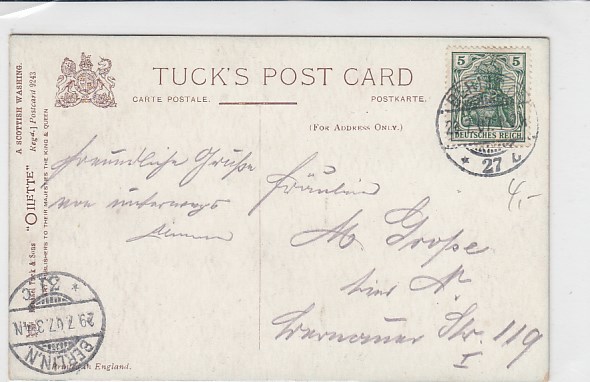 TUCK'S POST CARD
CARTE POSTALE.
POSTKARTE.
(FOR ADDRESS ONLY.)
A SCOTTISH WASHING.
Regd.] Postcard 9243
"OILETTE"
Tuck & Sons
PUBLISHERS TO THEIR MAJESTIES THE KING & QUEEN
5 5
DEUTSCHES REICH
BERLIN
* 27 b
4,-
freundliche Grüße
von unterwegs
Fräulein
M. Große
hier N.
Bernauer Str. 119
I
BERLIN.N
29.7.07.
* 31 c
Printed in England.